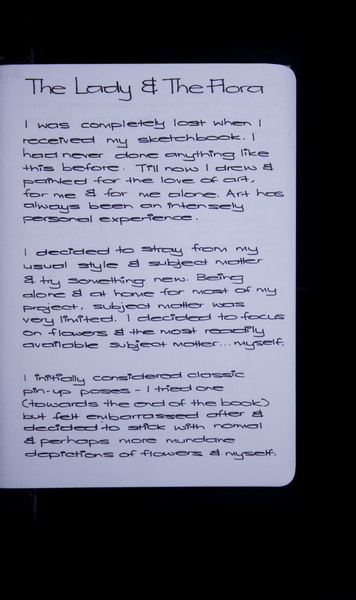 The Lady & The Flora
I was completely lost when I
received my sketchbook. I
had never done anything like
this before. Till now I drew &
painted for the love of art,
for me & for me alone. Art has
always been an intensely
personal experience.
I decided to stray from my
usual style & subject matter
& try something new. Being
alone & at home for most of my
project, subject matter was
very limited. I decided to focus
on flowers & the most readily
available subject matter... myself.
I initially considered classic
pin-up poses - I tried one
(towards the end of the book)
but felt embarrassed after &
decided to stick with normal
& perhaps more mundane
depictions of flowers & myself.